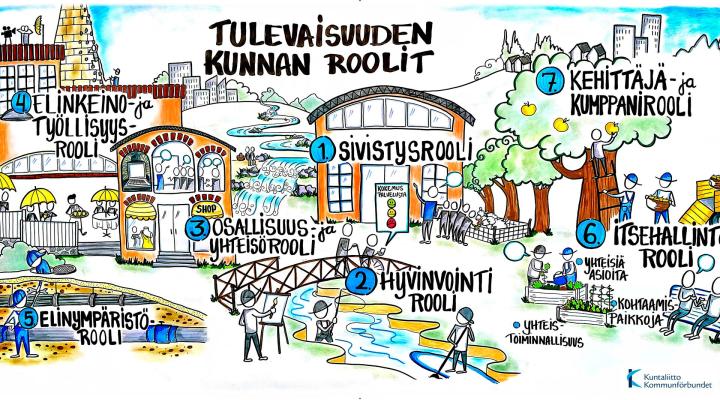 TULEVAISUUDEN
KUNNAN ROOLIT
1. SIVISTYSROOLI
2. HYVINVOINTI
ROOLI
KOKEMUS
PALVELUSTA
3 OSALLISUUS- ja
YHTEISÖROOLI
SHOP
4 ELINKEINO- ja
TYÖLLISYYS-
ROOLI
5 ELINYMPÄRISTÖ-
ROOLI
6. ITSEHALLINTO
ROOLI
YHTEISIÄ
ASIOITA
KOHTAAMIS
PAIKKOJA
YHTEIS-
TOIMINNALLISUUS
7. KEHITTÄJÄ- ja
KUMPPANIROOLI
Kuntaliitto
Kommunförbundet